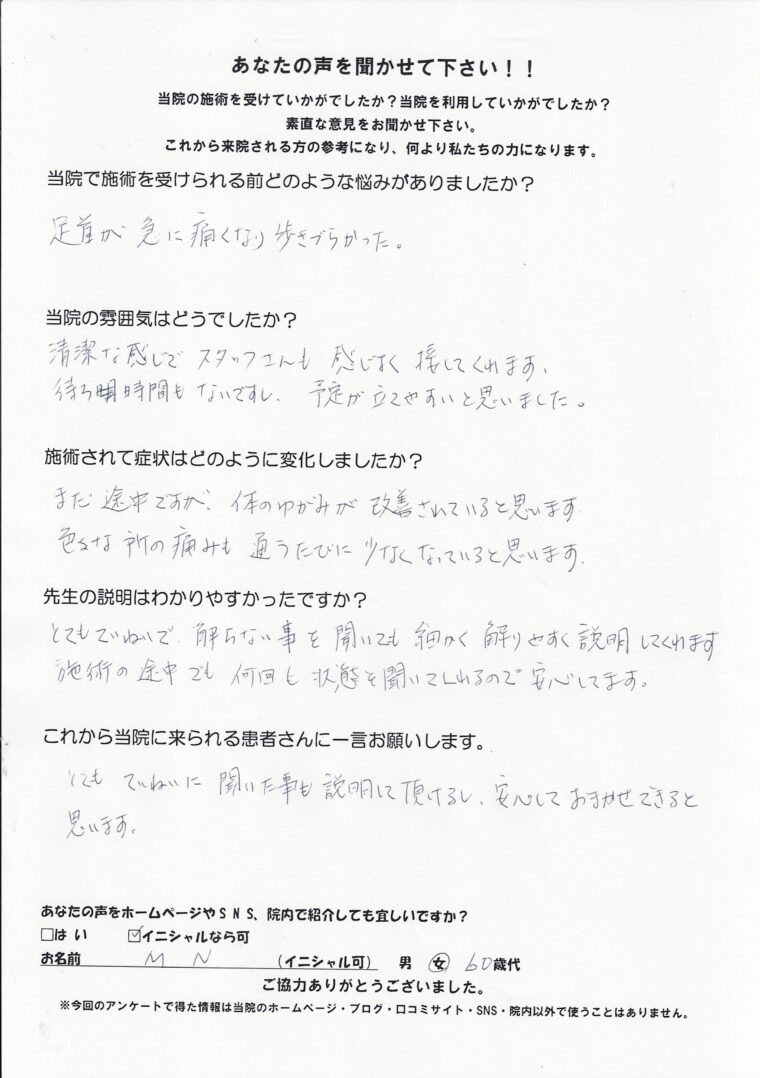 あなたの声を聞かせて下さい！！
当院の施術を受けていかがでしたか？当院を利用していかがでしたか？
素直な意見をお聞かせ下さい。
これから来院される方の参考になり、何より私たちの力になります。
当院で施術を受けられる前どのような悩みがありましたか？
足首が 急に痛くなり 歩きづらかった。
当院の雰囲気はどうでしたか？
清潔な感じで スタッフさんも 感じよく 接してくれます、
待ち時間も ないですし、 予定が立てやすいと思いました。
施術されて症状はどのように変化しましたか？
まだ 途中ですが、 体のゆがみが 改善されていると思います
色々な 所の 痛みも 通うたびに 少なくなっていると思います。
先生の説明はわかりやすかったですか？
とてもていねいで 解らない事を 聞いても 細かく 解りやすく 説明してくれます
施術の途中でも 何回も 状態を聞いてくれるので 安心してます。
これから当院に来られる患者さんに一言お願いします。
とても ていねいに 聞いた事も 説明して頂けるし、安心して おまかせできると
思います。
あなたの声をホームページやＳＮＳ、院内で紹介しても宜しいですか？
□はい ☑イニシャルなら可
お名前 M N （イニシャル可） 男 女 60歳代
ご協力ありがとうございました。
※今回のアンケートで得た情報は当院のホームページ・ブログ・口コミサイト・SNS・院内以外で使うことはありません。